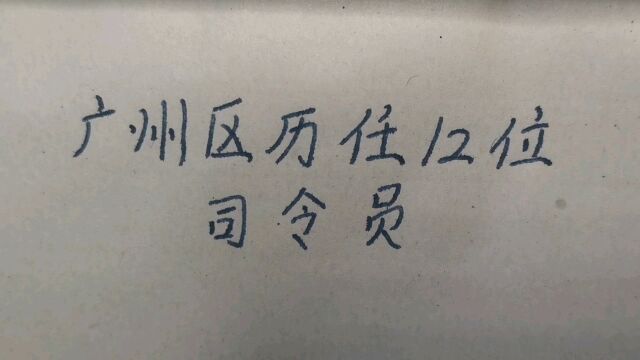 广州区历任12位
司令员